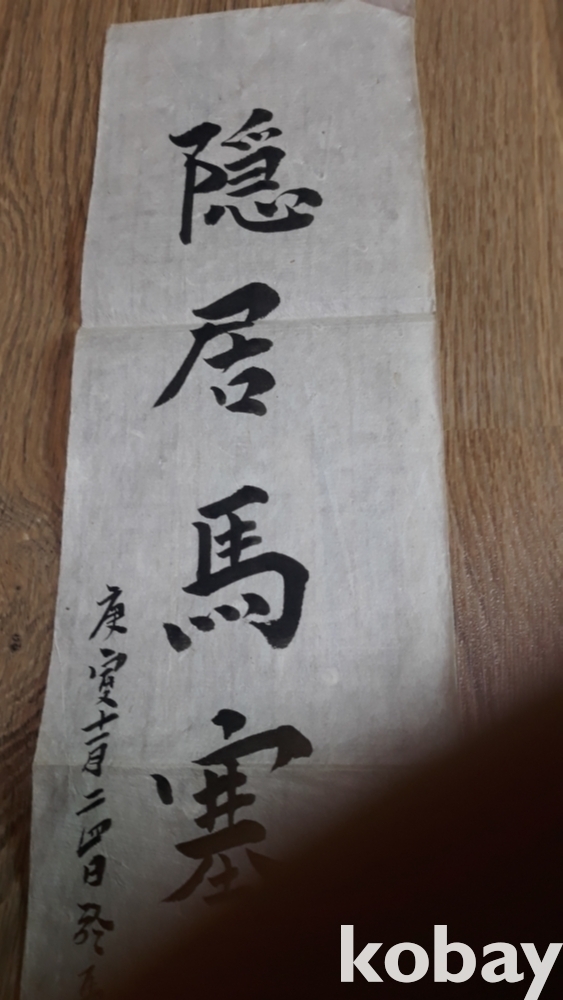 隐居馬塞
庚寅十一月二四日
kobay